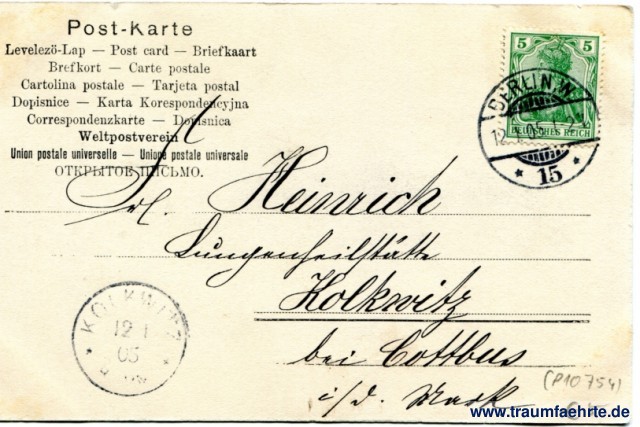 Post-Karte
Levelezö-Lap — Post card — Briefkaart
Brefkort — Carte postale
Cartolina postale — Tarjeta postal
Dopisnice — Karta Korespondencyjna
Correspondenzkarte — Dopisnica
Weltpostverein
Union postale universelle — Unione postale universale
ОТКРЫТОЕ ПИСЬМО.
5 5
DEUTSCHES REICH
BERLIN N.W.
12.1.05
* 15 *
Frl. Heinrich
Lungenheilstätte
Kolkwitz
bei Cottbus
i/d. Mark
KOLKWITZ
12 1
05
(P10754)
www.traumfaehrte.de